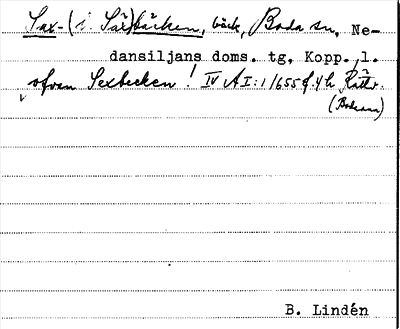 Sax- (i Säx)bäcken, bäck, Boda sn, Ne-
dansiljans doms. tg, Kopp. l.
ofvan Sexbecken! IV A I:1 1655 f. 4 h Rättv.
(Bodarna)
B. Lindén